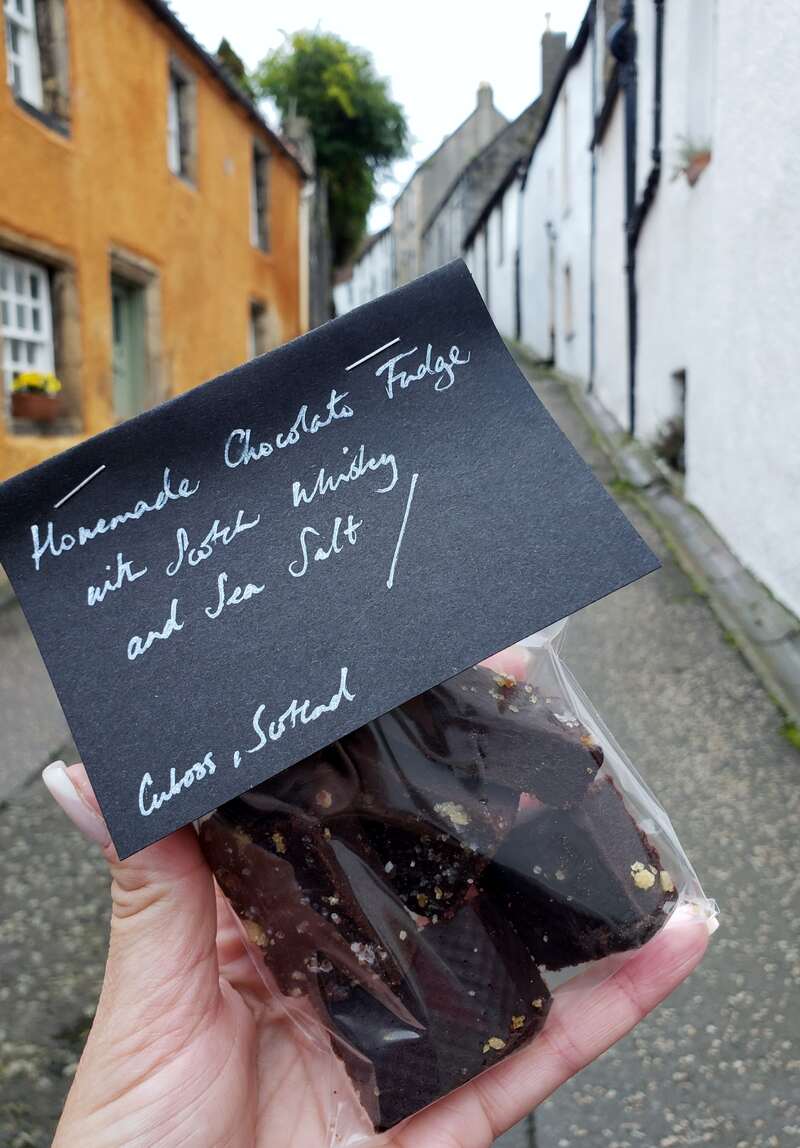 Homemade Chocolate Fudge
with Scotch Whisky
and Sea Salt /
Culross, Scotland